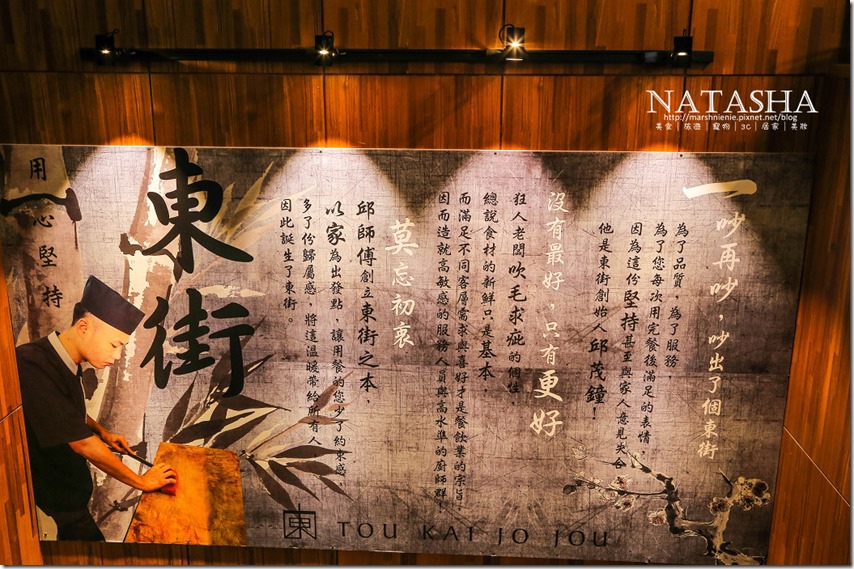 NATASHA
http://marshnienie.pixnet.net/blog
美食│旅遊│寵物│3C│居家│美妝
一吵再吵，吵出了個東街
為了品質，為了服務，
為了您每次用完餐後滿足的表情，
因為這份堅持甚至與家人意見尖合，
他是東街創始人邱茂鐘！
沒有最好，只有更好
狂人老闆吹毛求疵的個性，
總說食材的新鮮只是基本，
而滿足不同客層需求與喜好才是餐飲業的宗旨，
因而造就高敏感的服務人員與高水準的廚師群！
莫忘初衷
邱師傅創立東街之本，
以家為出發點，讓用餐的您少了約束感，
多了份歸屬感，將這溫暖帶給所有人，
因此誕生了東街。
東街
用心堅持
東 TOU KAI JO JOU